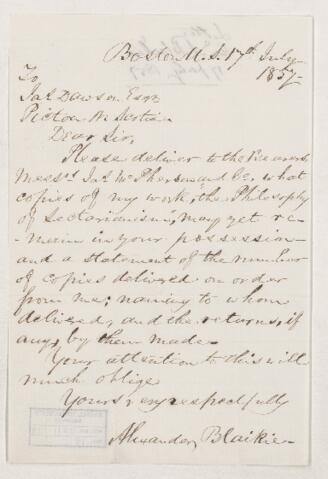 Boston U.S. 17th July
1857
To,
Jas. Dawson Esqr
Pictou N. Scotia
Dear Sir,
Please deliver to the bearers
Messrs Jas. McPherson and Co, what
copies of my work, "the Philosophy
of Sectarianism", may yet re-
main in your possession
and a statement of the number
of copies delivered on order
from me; naming to whom
delivered, and the returns, if
any, by them made.
Your attention to this will
much oblige
Yours very respectfully
Alexander Blaikie